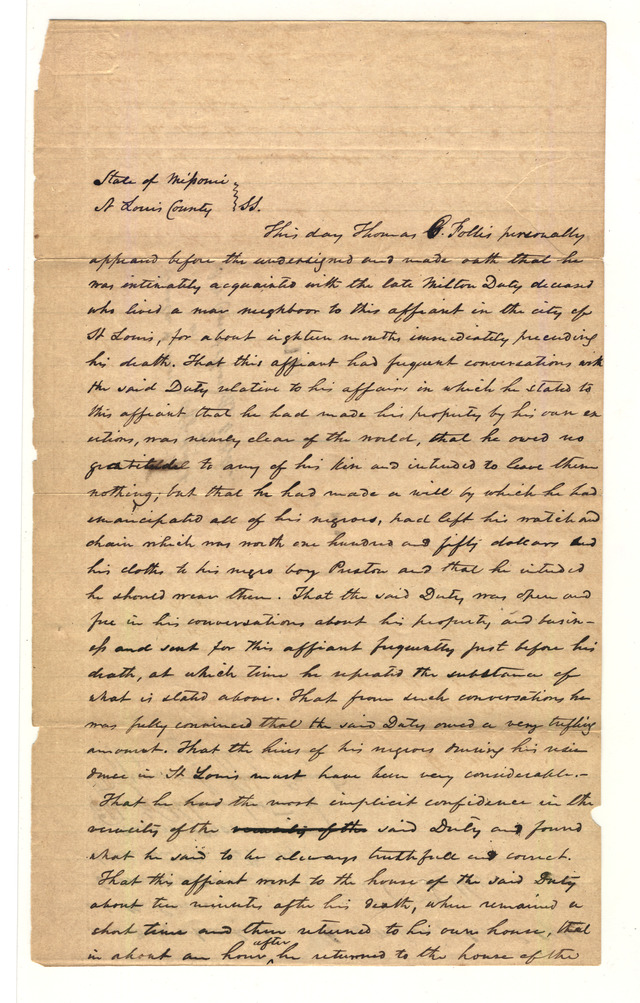 State of Missouri
St Louis County } SS.
This day Thomas C. Follis personally
appeared before the undersigned and made oath that he
was intimately acquainted with the late Milton Duty deceased
who lived a near neighboor to this affiant in the city of
St Louis, for about eighteen months immediately preceeding
his death. That this affiant had frequent conversations with
the said Duty relative to his affairs in which he stated to
this affiant that he had made his property by his own ex
ertions, was nearly clear of the world, that he owed no
gratitude to any of his kin and intended to leave them
nothing; but that he had made a will by which he had
emancipated all of his negroes, had left his watch and
chain which was worth one hundred and fifty dollars and
his cloths to his negro boy Preston and that he intended
he should wear them. That the said Duty was open and
free in his conversations about his property and busin-
ess and sent for this affiant frequently just before his
death, at which time he repeated the substance of
what is stated above. That from such conversations he
was fully convinced that the said Duty owed a very trifling
amount. That the hires of his negroes during his resi
dence in St Louis must have been very considerable.-
That he had the most implicit confidence in the
veracity of the veracity of the said Duty and found
what he said to be always truthfull and correct.
That this affiant went to the house of the said Duty
about ten minutes after his death, where remained a
short time and then returned to his own house, that
in about an hour after he returned to the house of the